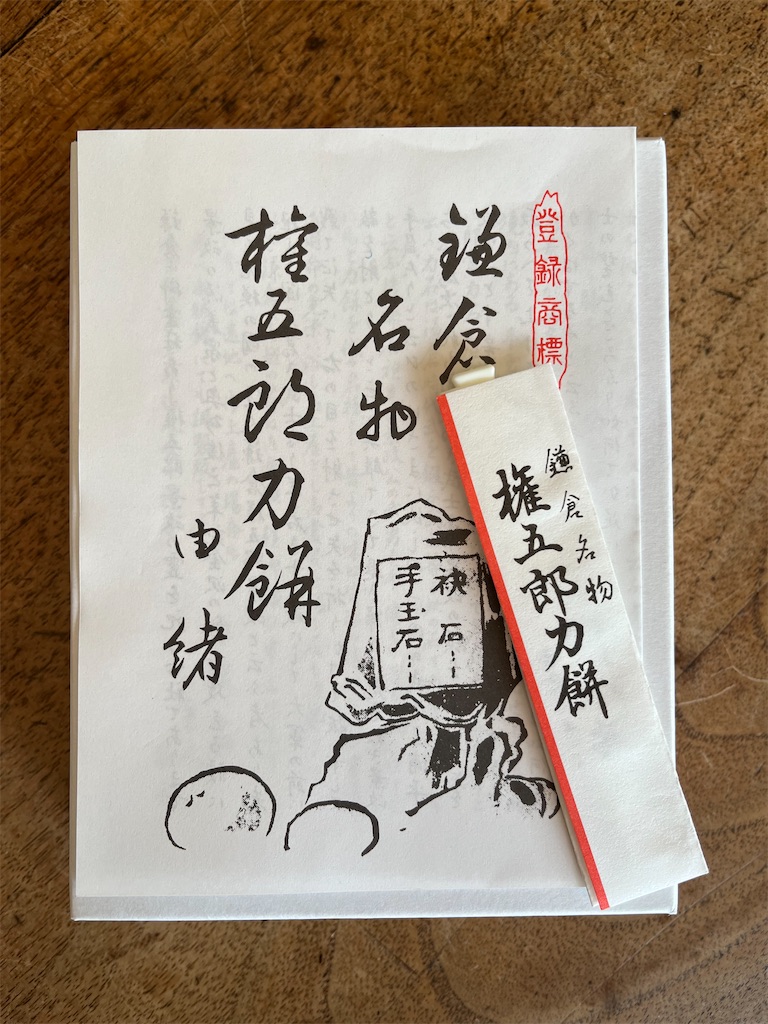 登録商標
鎌倉
名物
権五郎力餅
由緒
袂石
手玉石
鎌倉名物
権五郎力餅